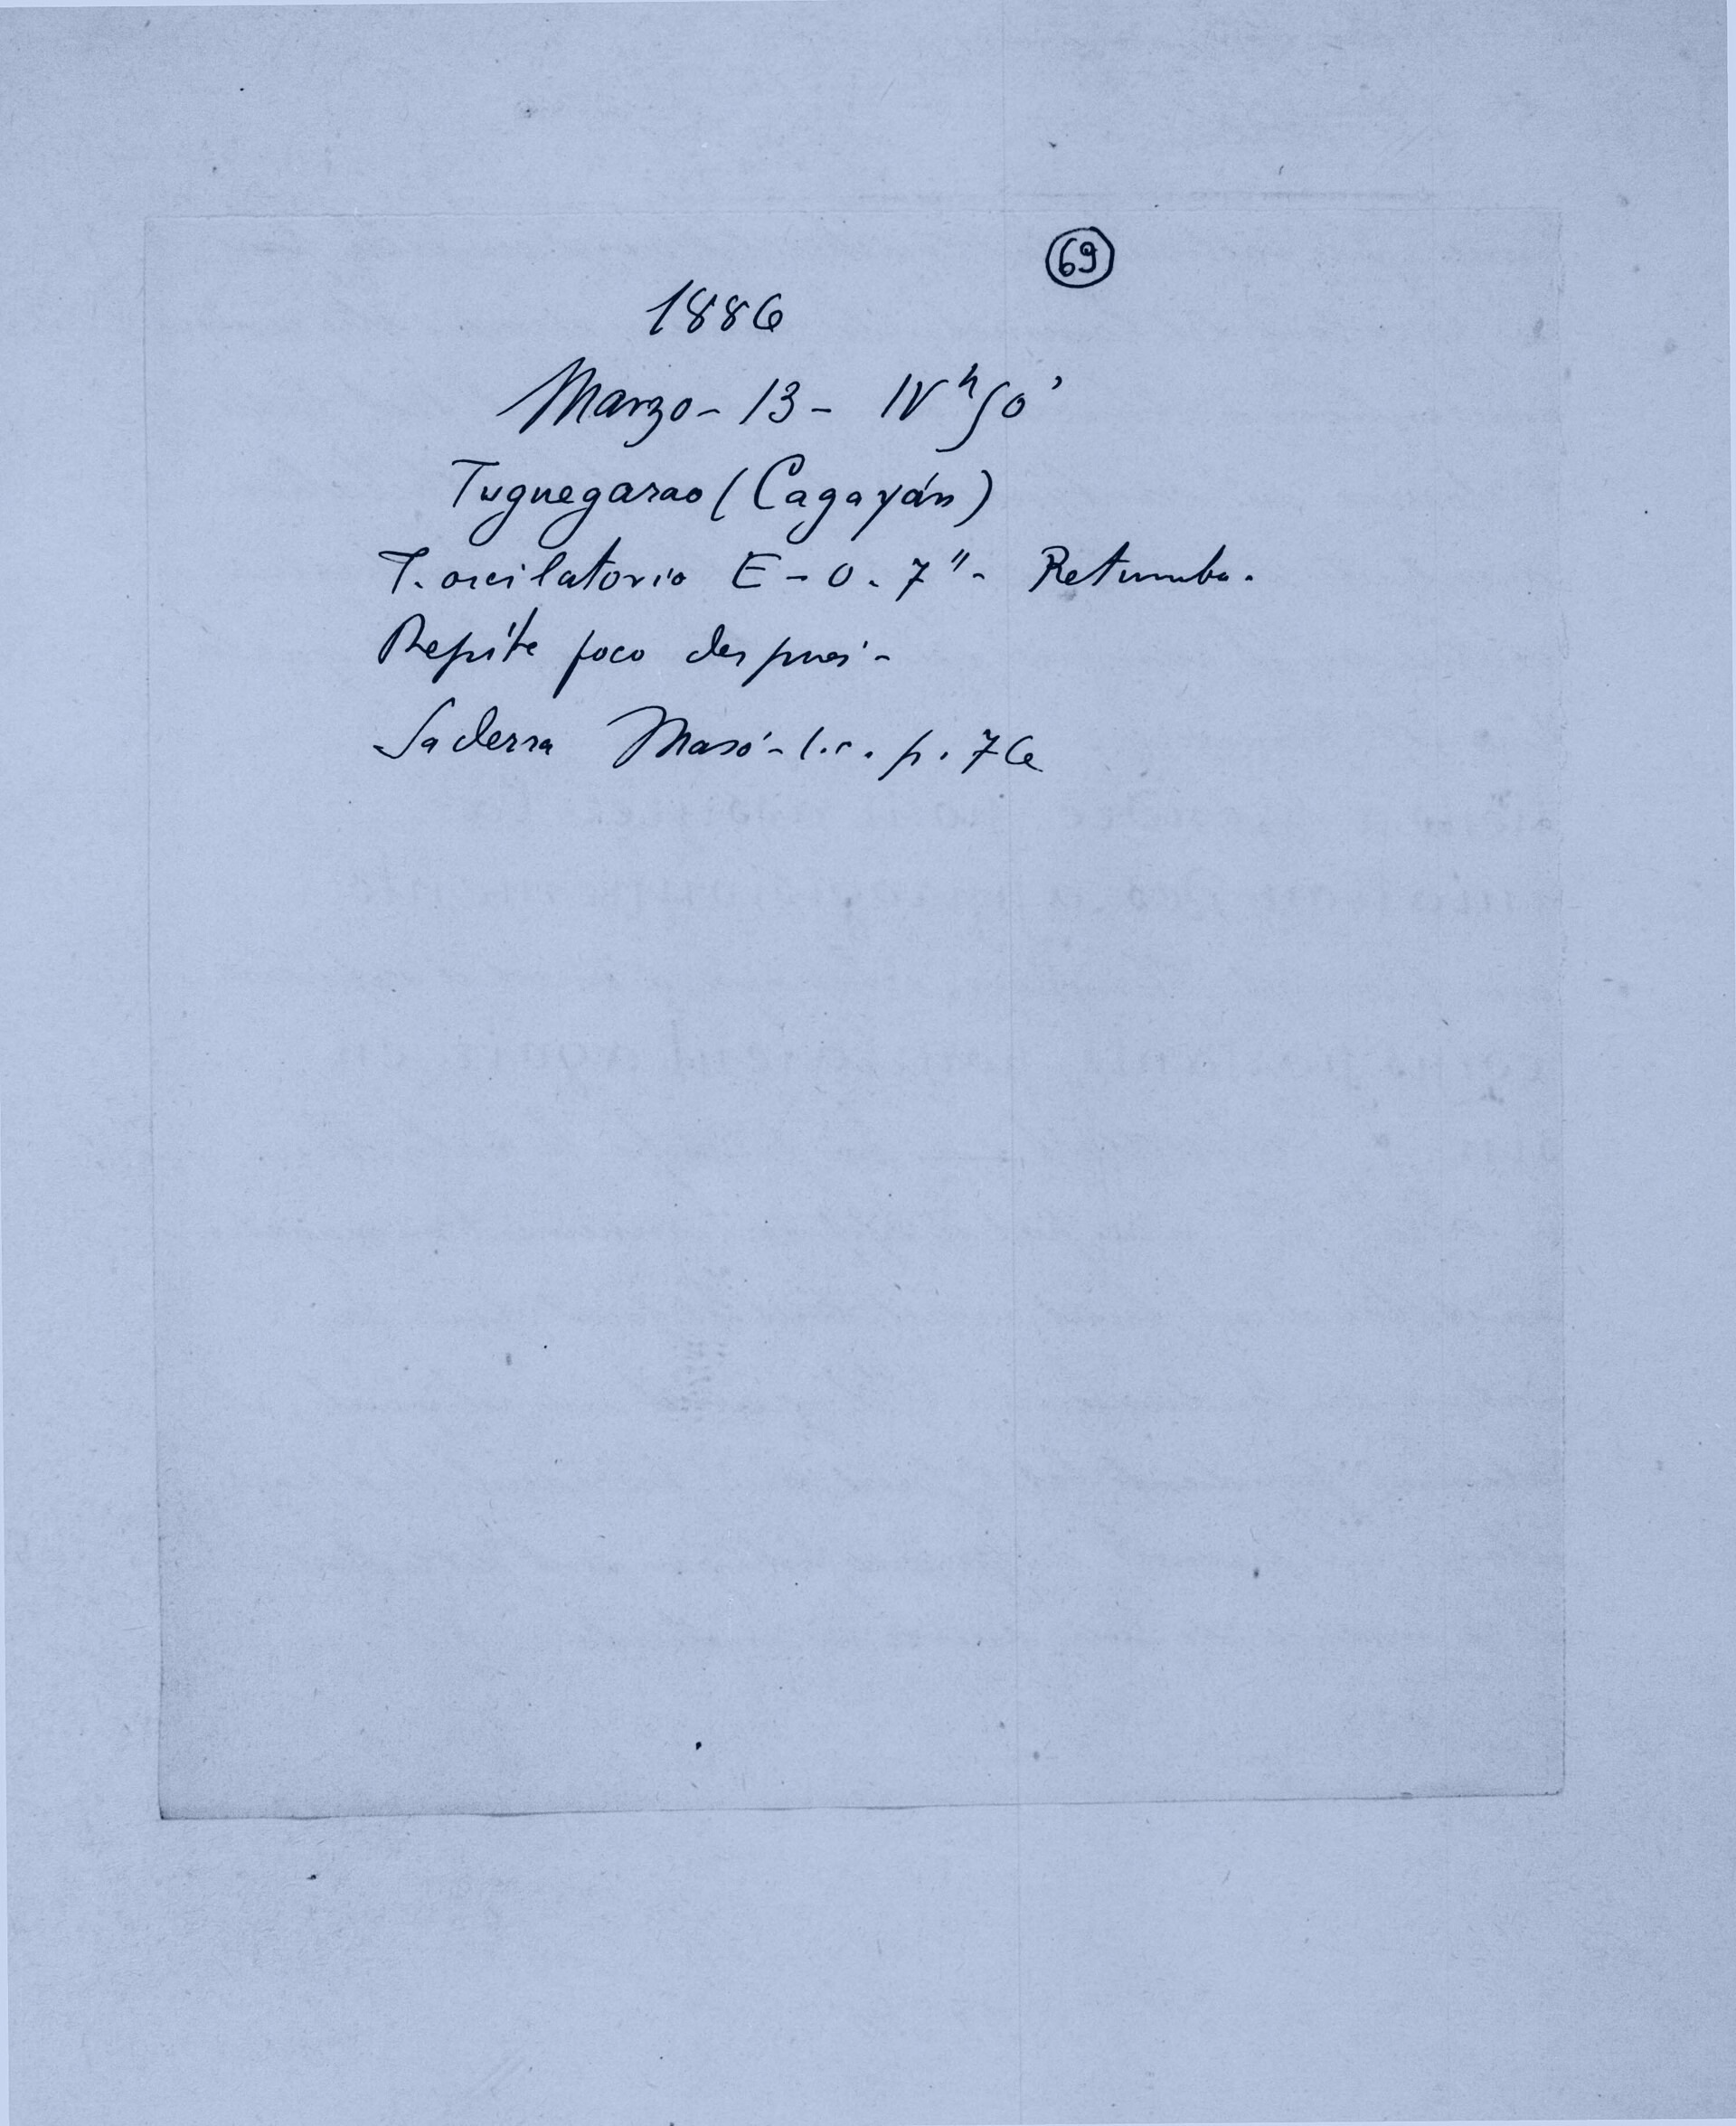 69
1886
Marzo - 13 - IV h 50'
Tuguegarao (Cagayán)
T. oscilatorio E - O. 7" - Retumba.
Repite poco después -
Saderra Masó - l.c. p. 76